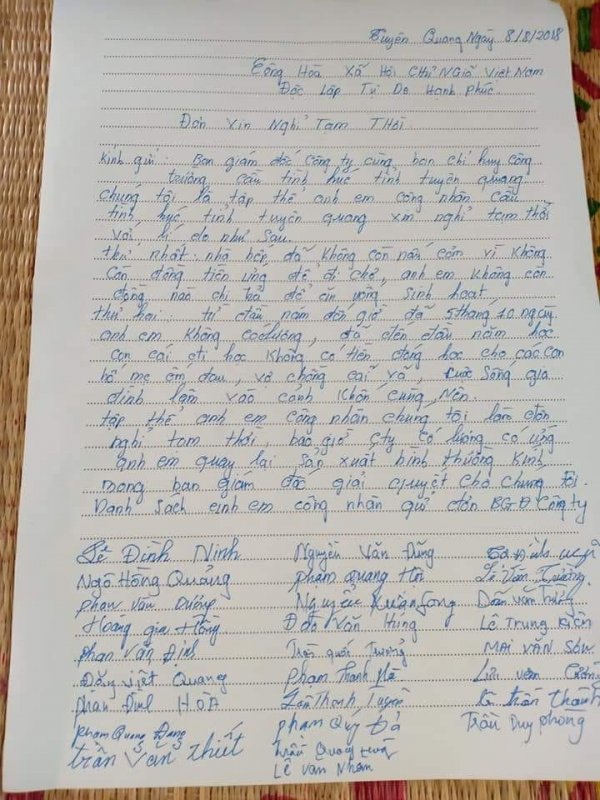 Tuyên Quang Ngày 8/8/2018
Cộng Hòa Xã Hội Chủ Nghĩa Việt Nam
Độc Lập Tự Do Hạnh Phúc.
Đơn Xin Nghỉ Tạm Thời.
Kính gửi: Ban giám đốc công ty cùng ban chỉ huy công
trường cầu tình húc tỉnh tuyên quang
chúng tôi là tập thể anh em công nhân cầu
tình húc, tỉnh tuyên quang xin nghỉ tạm thời
với lí do như sau.
thứ nhất. nhà bếp đã không còn nấu cơm vì không
còn đồng tiền ứng để đi chợ, anh em không còn
đồng nào chi trả để ăn uống sinh hoạt.
thứ hai: từ đầu năm đến giờ đã 5 tháng 10 ngày
anh em không có lương, đã đến đầu năm học
con cái đi học không có tiền đóng học cho các con
bố mẹ ốm đau, vợ chồng cãi vã, cuộc sống gia
đình lâm vào cảnh khốn cùng, nên.
tập thể anh em công nhân chúng tôi làm đơn
nghỉ tạm thời, bao giờ cty có lương có ứng
anh em quay lại sản xuất bình thường kính
mong ban giám đốc giải quyết cho chúng tôi.
Danh sách anh em công nhân gửi đơn BGĐ Công ty
Lê Đình Ninh Nguyễn Văn Dũng
Ngô Hồng Quảng phạm quang Hợi Lê Văn Trường
phan văn Dương Nguyễn Xuân Đoàn văn
Hoàng gia Hồng Đào Văn Hùng Lê Trung Kiên
phan Văn Định Trần quốc Trường MAI VĂN SƠN
Đặng việt Quang phạm Thanh Lưu văn
phan Đình HOÀ Trần
phạm Quang Đạng phạm Quý Trần Duy phong
trần Văn Thiết trần Quang
Lê Văn Nhâm